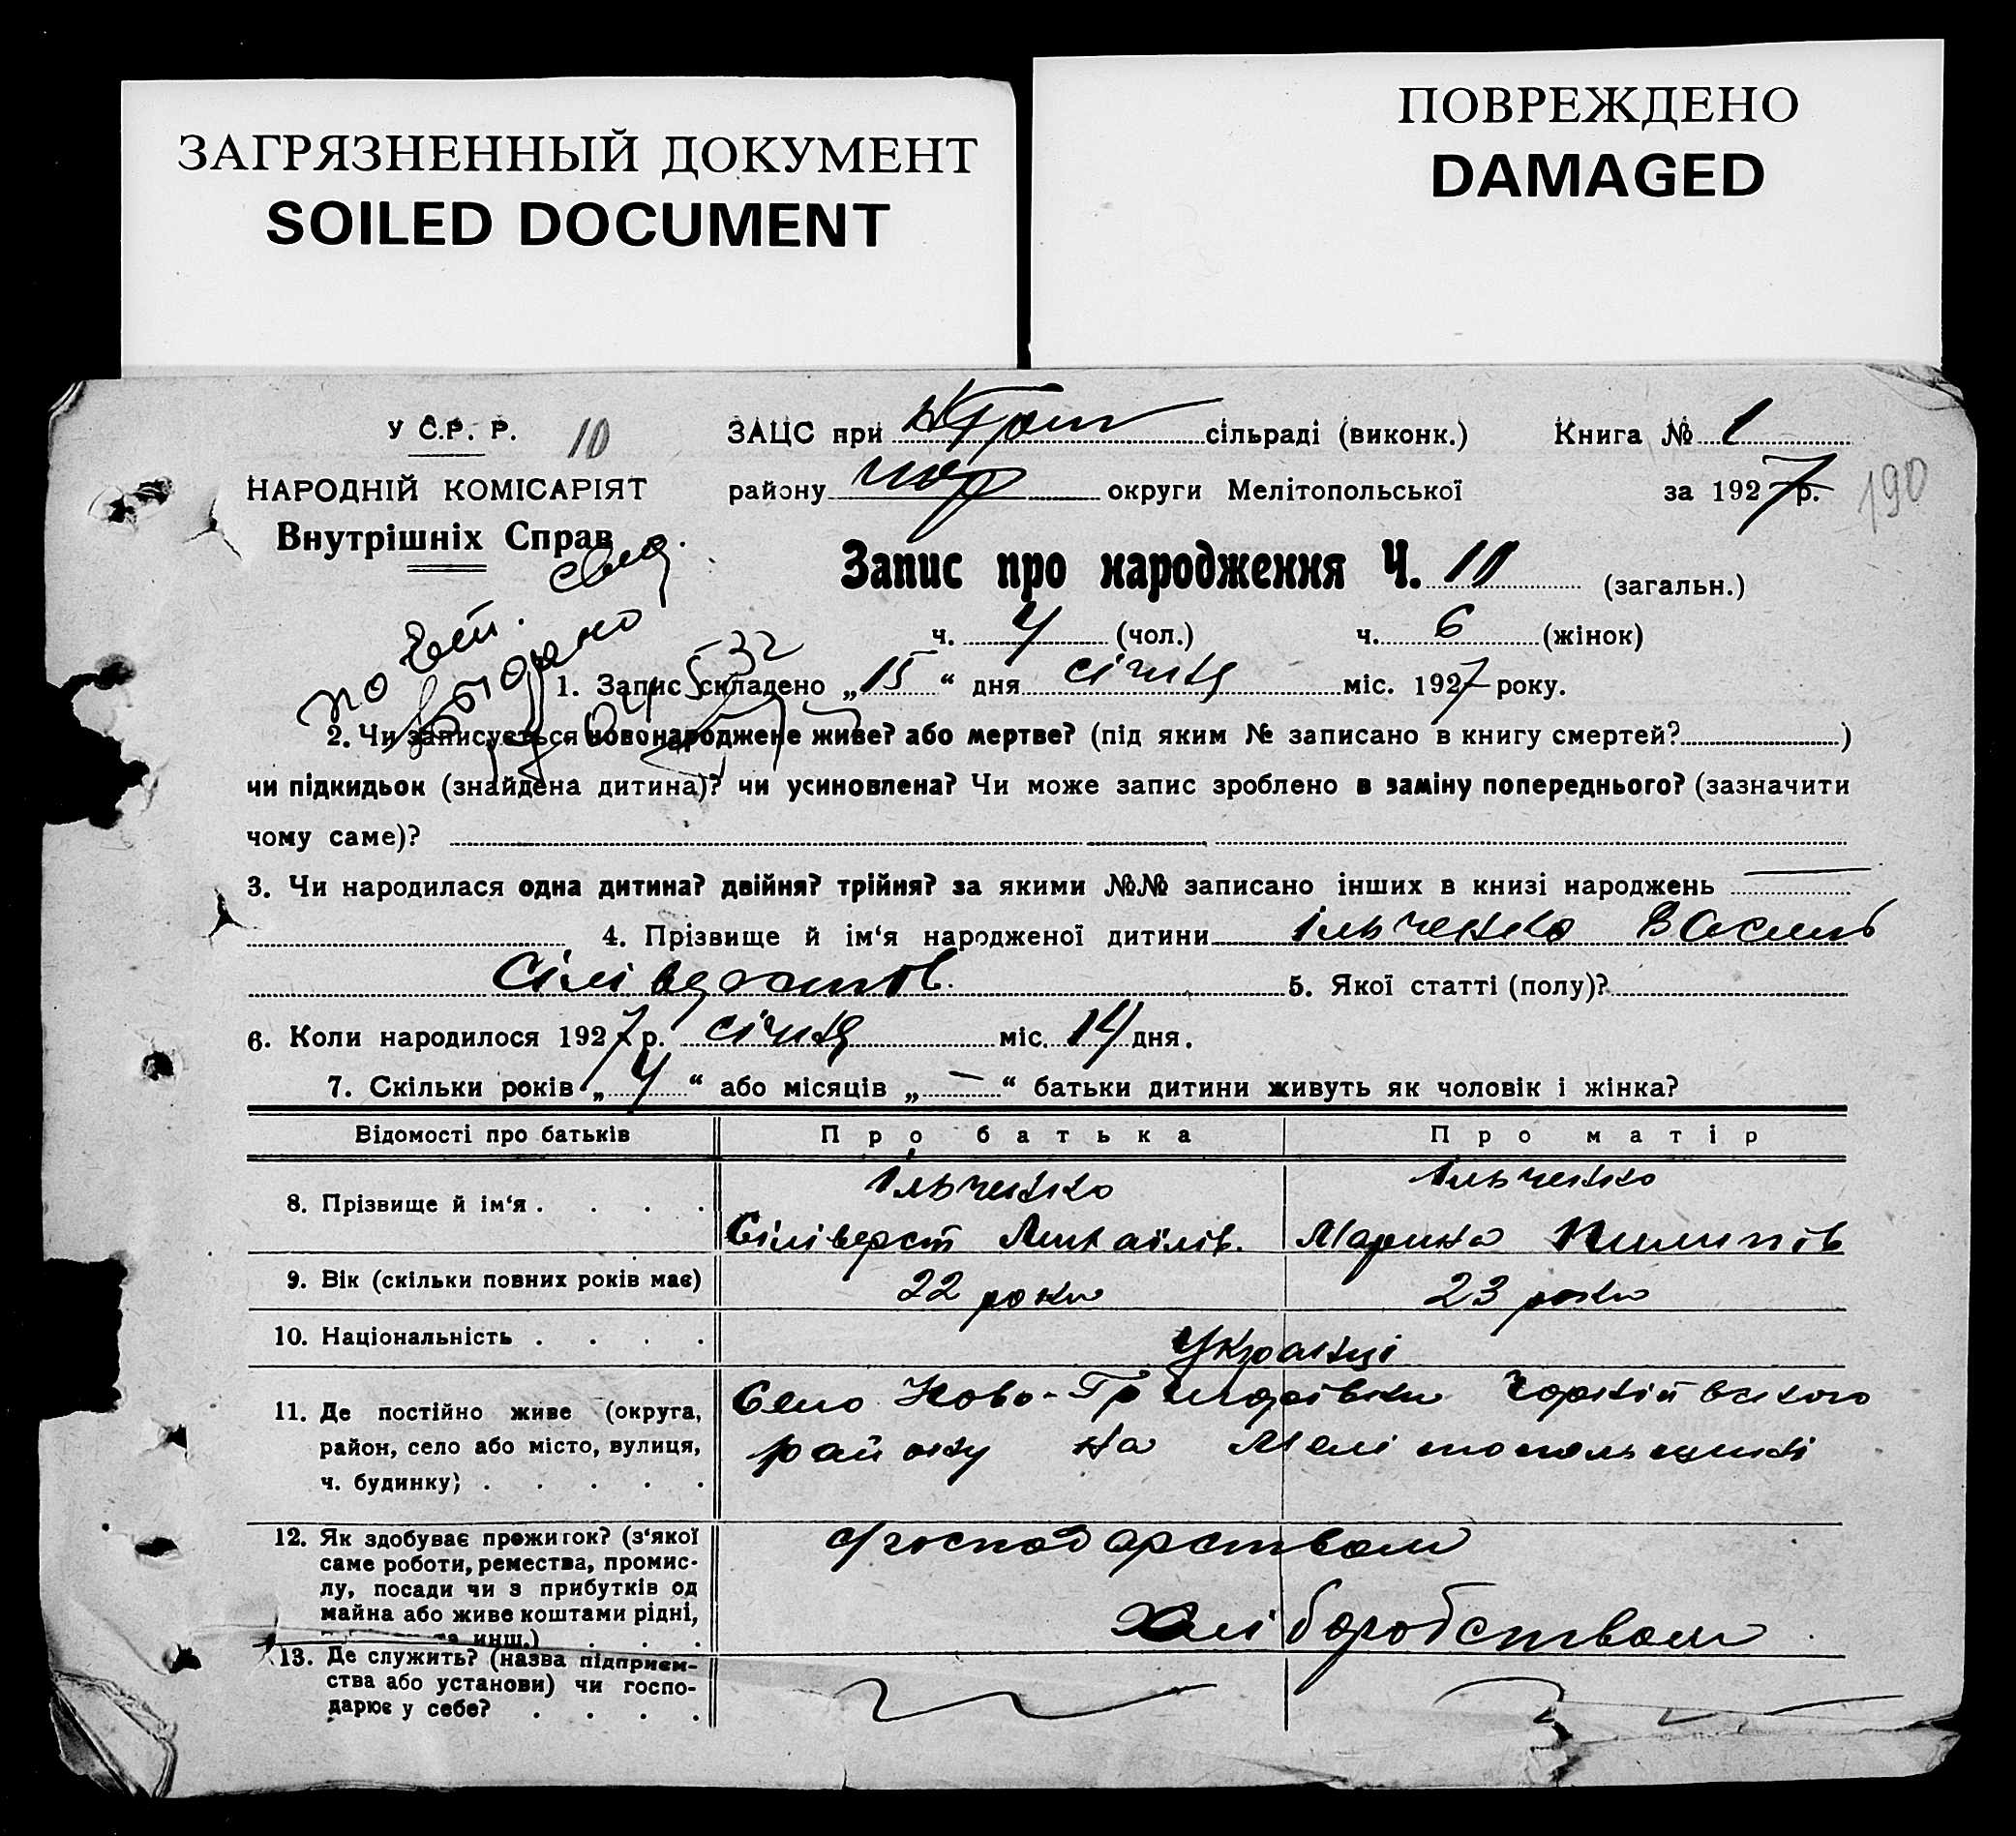 ЗАГРЯЗНЕННЫЙ ДОКУМЕНТ
SOILED DOCUMENT
ПОВРЕЖДЕНО
DAMAGED
У С.Р. Р. 10 ЗАЦС при сільраді (виконк.) Книга № 1
НАРОДНІЙ КОМІСАРІЯТ району округи Мелітопольської за 1927 р. 190
Внутрішніх Справ
Запис про народження Ч. 10 (загальн.)
ч. 4 (чол.) ч. 6 (жінок)
1. Запис складено „15“ дня січня міс. 1927 року.
2. Чи записується новонароджене живе? або мертве? (під яким № записано в книгу смертей? )
чи підкидьок (знайдена дитина)? чи усиновлена? Чи може запис зроблено в заміну попереднього? (зазначити
чому саме)?
3. Чи народилася одна дитина? двійня? трійня? за якими №№ записано інших в книзі народжень —
4. Прізвище й ім‘я народженої дитини Ільченко Василь
Сіліверстів. 5. Якої статті (полу)?
6. Коли народилося 1927 р. січня міс. 14 дня.
7. Скільки років „4“ або місяців „—“ батьки дитини живуть як чоловік і жінка?
Відомості про батьків Про батька Про матір
8. Прізвище й ім‘я . . . . Ільченко Ільченко
Сіліверст Михаілів. Марина Пилипів
9. Вік (скільки повних років має) 22 роки 23 роки
10. Національність . . . . Українці
11. Де постійно живе (округа, Село Ново-Григорівки
район, село або місто, вулиця, району на Мелітопольщині
ч. будинку) . . . . .
12. Як здобуває прожиток? (з‘якої господарством
саме роботи, ремества, промис-
лу, посади чи з прибутків од
майна або живе коштами рідні, Хліборобством
инш.) . . .
13. Де служить? (назва підприєм-
ства або установи) чи госпо-
дарює у себе? . . . .